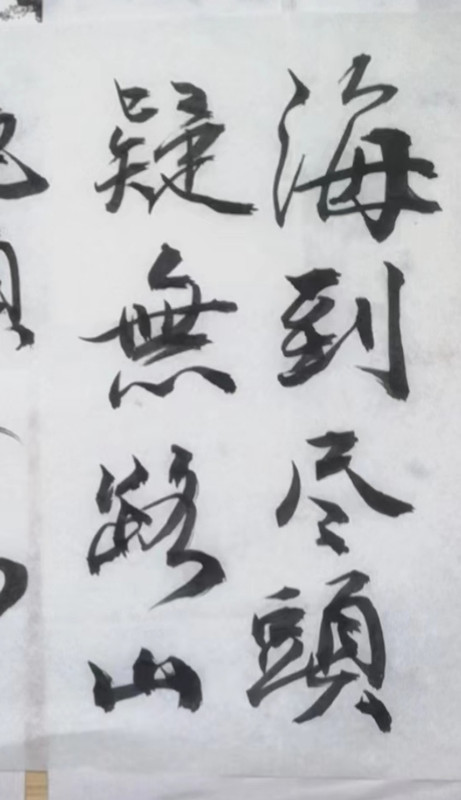 海到尽頭
疑無路山